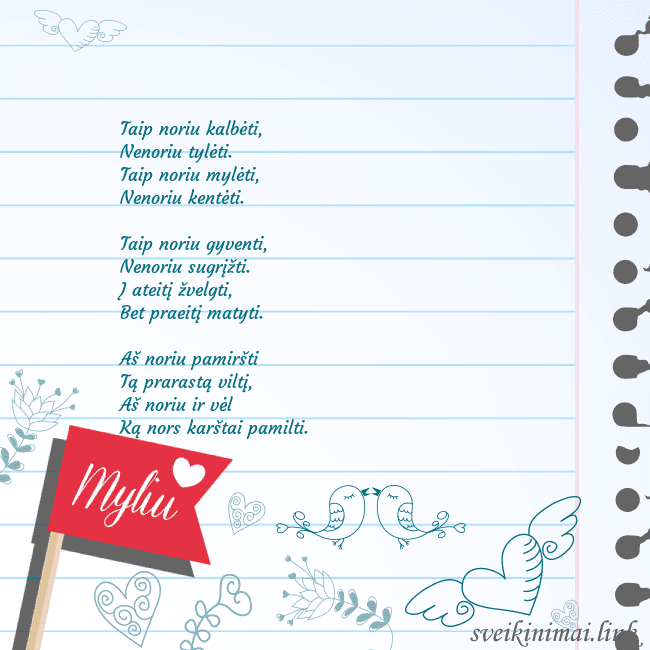 Taip noriu kalbėti,
Nenoriu tylėti.
Taip noriu mylėti,
Nenoriu kentėti.
Taip noriu gyventi,
Nenoriu sugrįžti.
Į ateitį žvelgti,
Bet praeitį matyti.
Aš noriu pamiršti
Tą prarastą viltį,
Aš noriu ir vėl
Ką nors karštai pamilti.
Myliu
sveikinimai.link